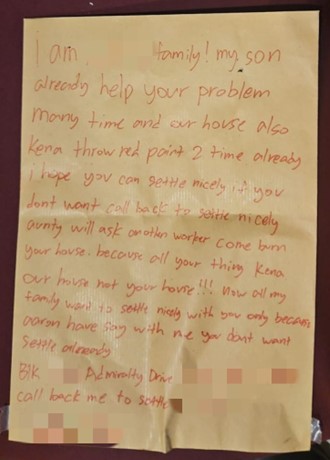 I am family! my son
already help your problem
many time and our house also
kena throw red paint 2 time already
i hope you can settle nicely if you
dont want call back to settle nicely
aunty will ask another worker come burn
your house. because all your thing kena
our house not your house!!! now all my
family want to settle nicely with you only because
aaron have say with me you dont want
settle already
Blk Admiralty Drive
call back me to settle